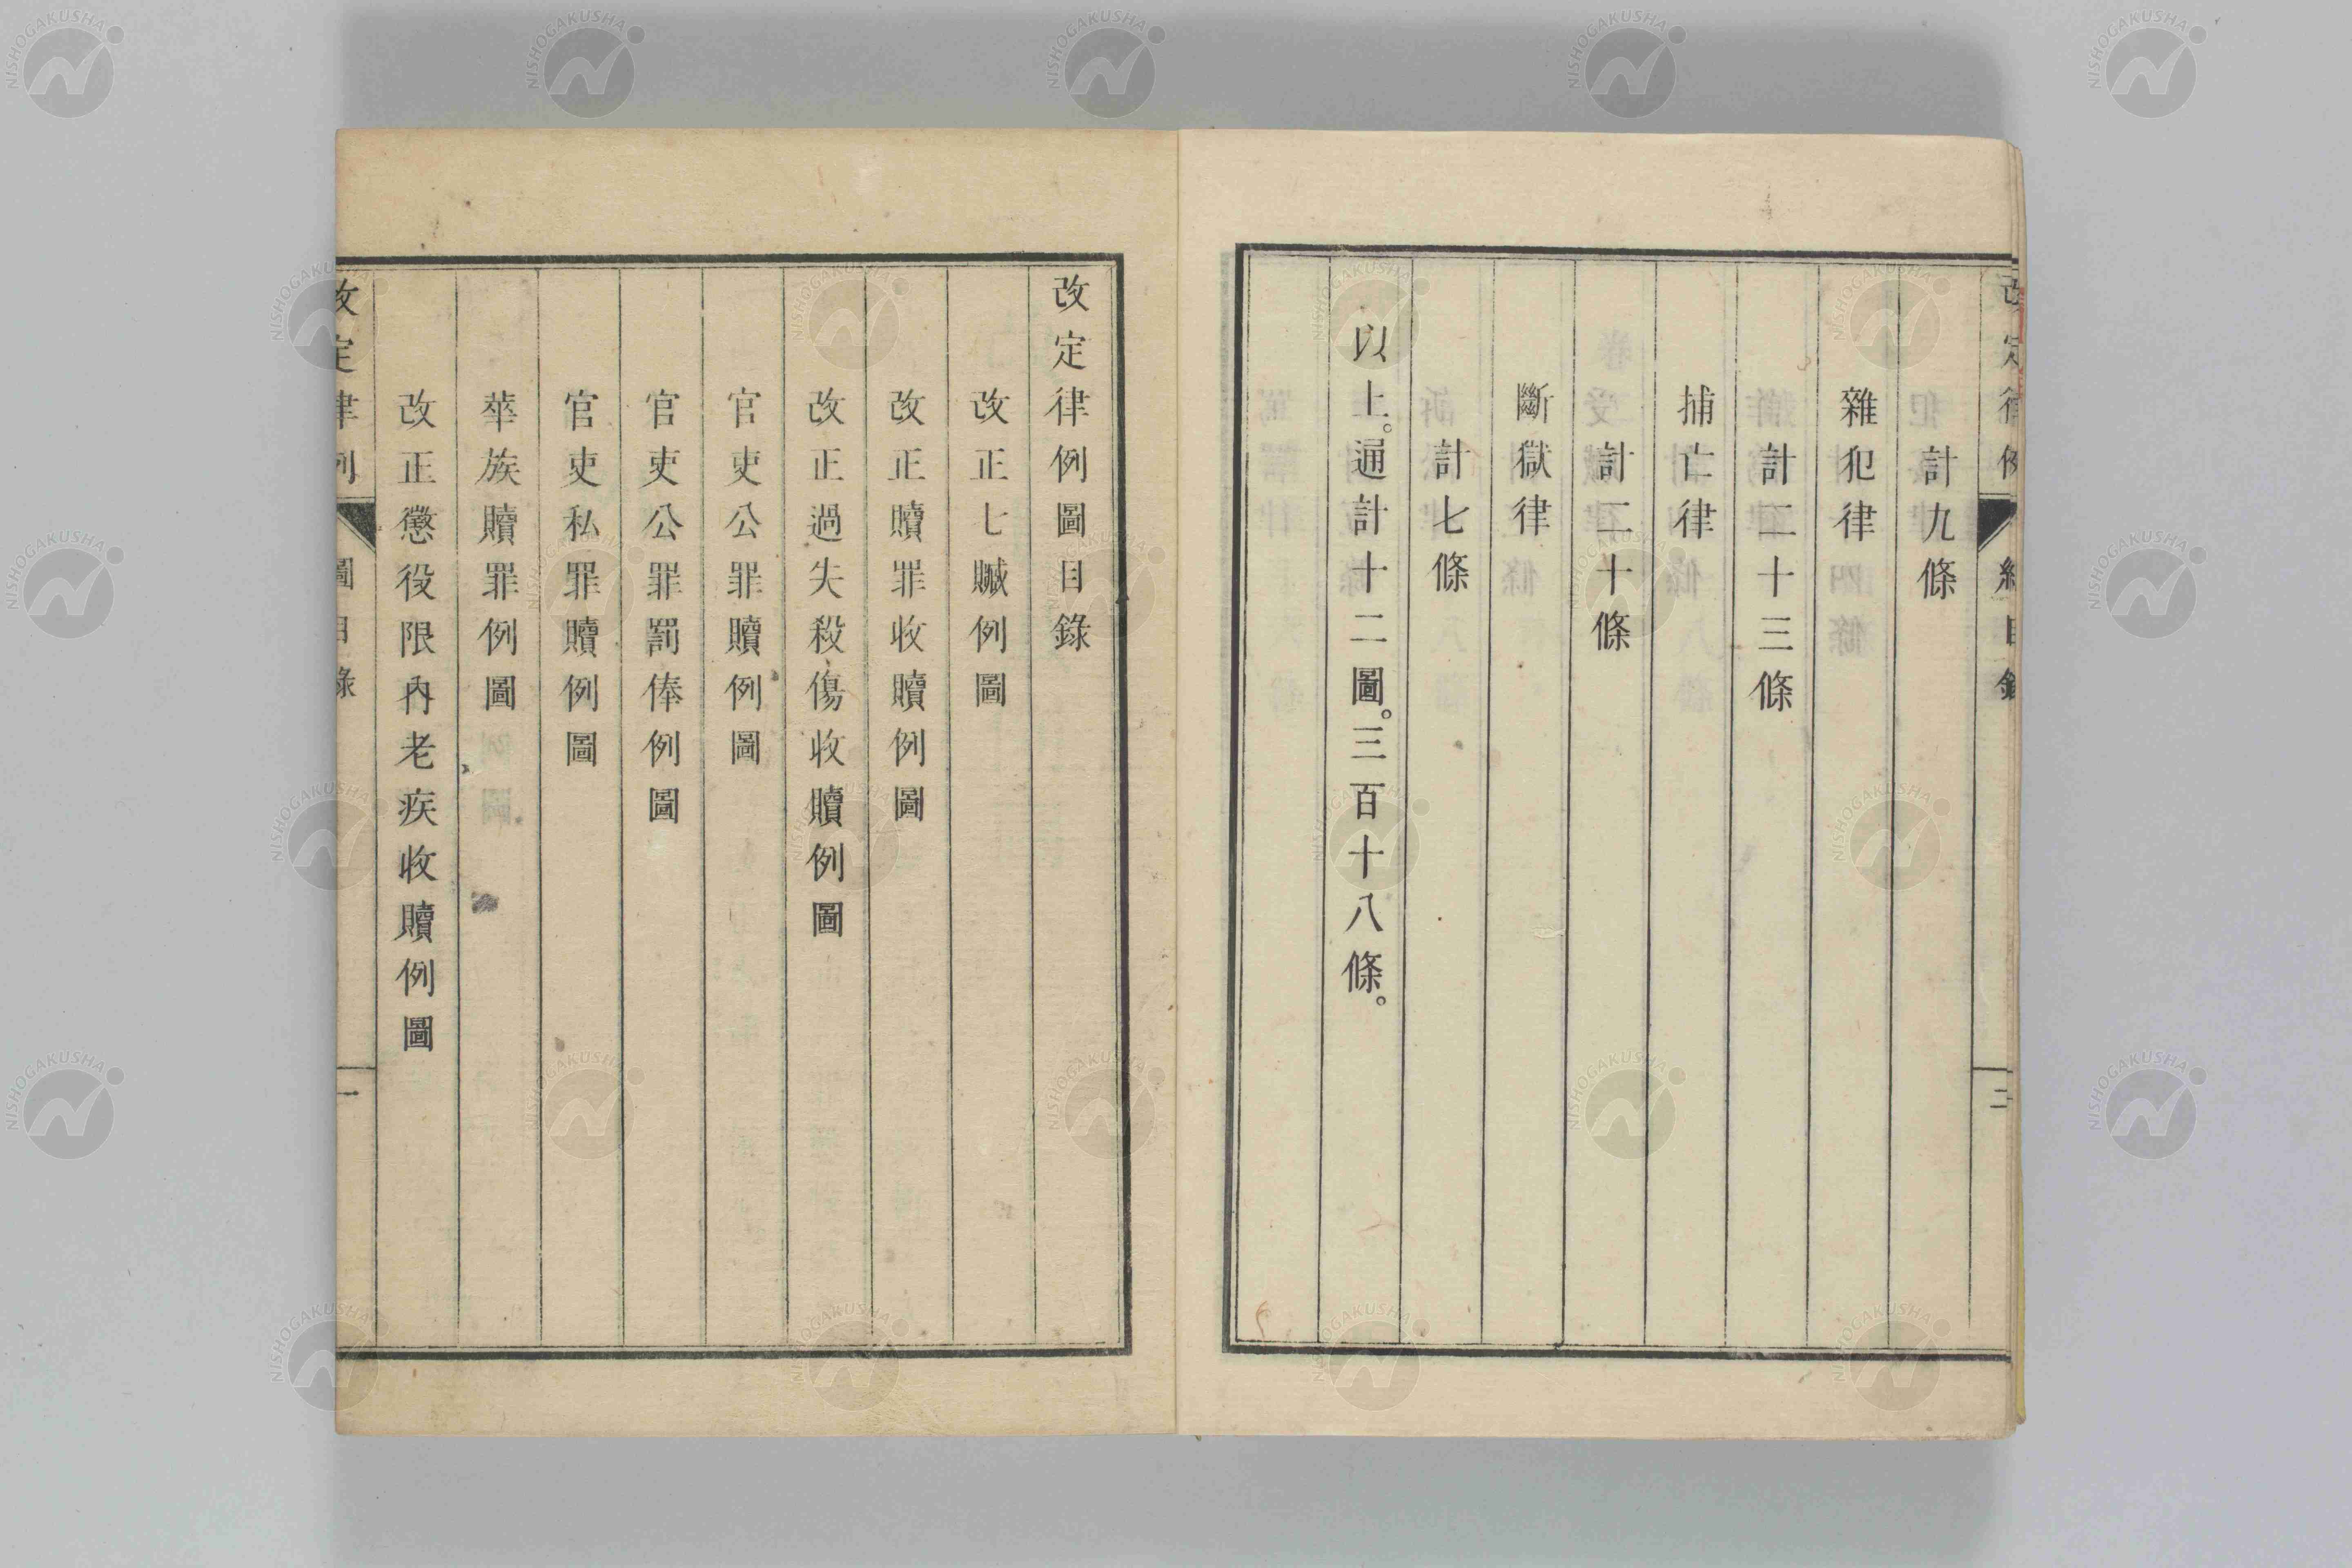 改定律例 總目錄 二
計九條
雜犯律
計二十三條
捕亡律
計二十條
斷獄律
計七條
以上。通計十二圖。三百十八條。
改定律例圖目錄
改正七贓例圖
改正贖罪收贖例圖
改正過失殺傷收贖例圖
官吏公罪贖例圖
官吏公罪罰俸例圖
官吏私罪贖例圖
華族贖罪例圖
改正懲役限內老疾收贖例圖
改定律例 圖目錄 一
NISHOGAKUSHA